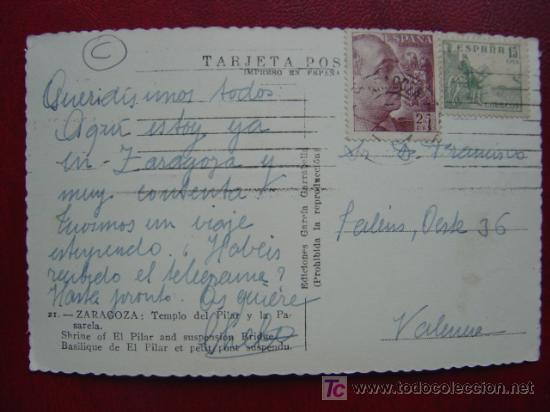 C
TARJETA POS
IMPRESO EN ESPAÑA
ESPAÑA
25
CTS
ESPAÑA
15
CTS
CORREOS
Queridísimos todos
Aquí estoy ya
en Zaragoza y
muy contenta
Tuvimos un viaje
estupendo. ¿Habéis
recibido el telegrama?
Hasta pronto. Os quiere
21. — ZARAGOZA: Templo del Pilar y la Pa-
sarela.
Shrine of El Pilar and suspension Bridge.
Basilique de El Pilar et petit pont suspendu.
Ediciones García Garrabella
(Prohibida la reproducción)
Sr. D. Francisco
Oeste 36
Valencia
todocoleccion
www.todocoleccion.net